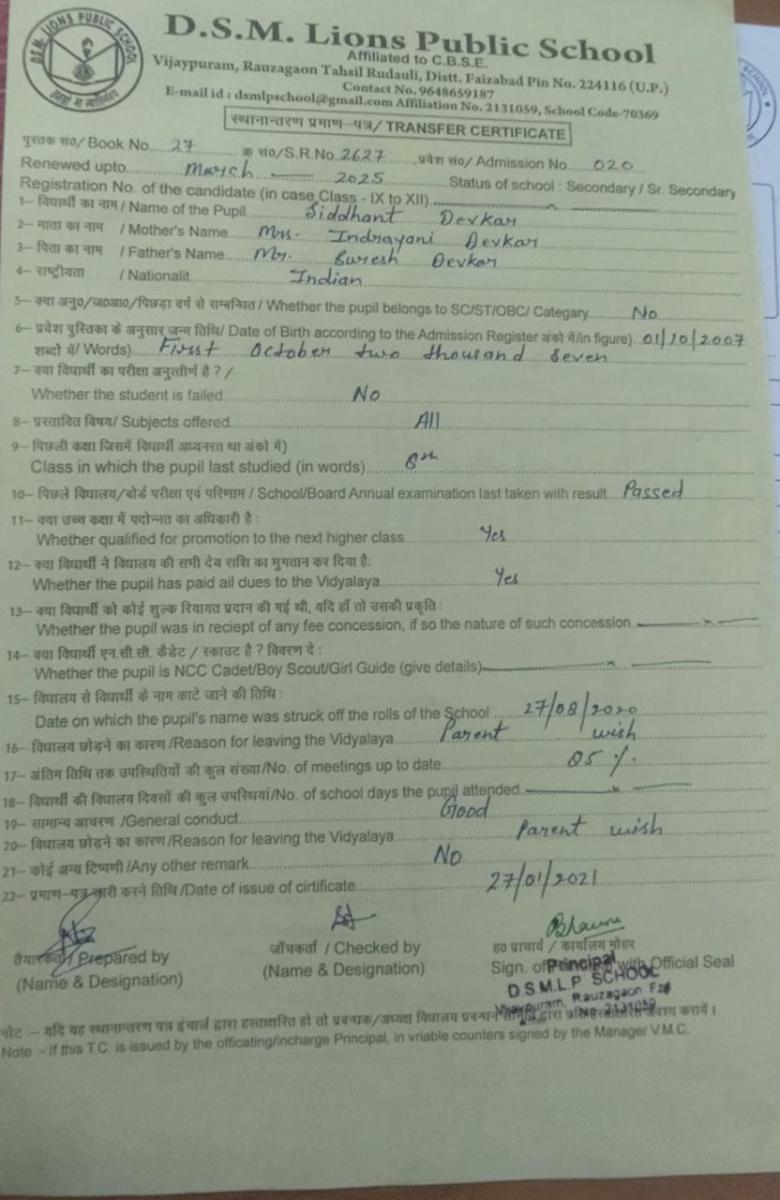 D.S.M. LIONS PUBLIC SCHOOL
D.S.M. Lions Public School
Affiliated to C.B.S.E.
Vijaypuram, Rauzagaon Tahsil Rudauli, Distt. Faizabad Pin No. 224116 (U.P.)
Contact No. 9648659187
E-mail id : dsmlpschool@gmail.com Affiliation No. 2131059, School Code-70369
स्थानान्तरण प्रमाण-पत्र/ TRANSFER CERTIFICATE
पुस्तक सं०/ Book No. 27 क्र सं०/S.R.No. 2627 प्रवेश सं०/ Admission No. 020
Renewed upto March 2025 Status of school : Secondary / Sr. Secondary
Registration No. of the candidate (in case Class - IX to XII)
1- विद्यार्थी का नाम / Name of the Pupil Siddhant Devkar
2- माता का नाम / Mother's Name Mrs. Indrayani Devkar
3- पिता का नाम / Father's Name Mr. Suresh Devkar
4- राष्ट्रीयता / Nationalit Indian
5- क्या अनु०/ज०आ०/पिछड़ा वर्ग से सम्बन्धित / Whether the pupil belongs to SC/ST/OBC/ Categary No
6- प्रवेश पुस्तिका के अनुसार जन्म तिथि/ Date of Birth according to the Admission Register अंको में/in figure) 01/10/2007
शब्दो में/ Words) First October two thousand seven
7- क्या विद्यार्थी का परीक्षा अनुत्तीर्ण है ? /
Whether the student is failed No
8- प्रस्तावित विषय/ Subjects offered All
9- पिछली कक्षा जिसमें विद्यार्थी अध्यनरत था अंको में)
Class in which the pupil last studied (in words) 8th
10- पिछले विद्यालय/बोर्ड परीक्षा एवं परिणाम / School/Board Annual examination last taken with result Passed
11- क्या उच्च कक्षा में पदोन्नत का अधिकारी है :
Whether qualified for promotion to the next higher class Yes
12- क्या विद्यार्थी ने विद्यालय की सभी देय राशि का भुगतान कर दिया है:
Whether the pupil has paid ail dues to the Vidyalaya Yes
13- क्या विद्यार्थी को कोई शुल्क रियायत प्रदान की गई थी, यदि हाँ तो उसकी प्रकृति :
Whether the pupil was in reciept of any fee concession, if so the nature of such concession
14- क्या विद्यार्थी एन.सी.सी. कैडेट / स्काउट है ? विवरण दे :
Whether the pupil is NCC Cadet/Boy Scout/Girl Guide (give details)
15- विद्यालय से विद्यार्थी के नाम काटे जाने की तिथि :
Date on which the pupil's name was struck off the rolls of the School 27/08/2020
16- विद्यालय छोड़ने का कारण /Reason for leaving the Vidyalaya Parent wish
17- अंतिम तिथि तक उपस्थितियों की कुल संख्या/No. of meetings up to date 85 %.
18- विद्यार्थी की विद्यालय दिवसों की कुल उपस्थियां/No. of school days the pupil attended
19- सामान्य आचरण /General conduct Good
20- विद्यालय छोड़ने का कारण /Reason for leaving the Vidyalaya Parent wish
21- कोई अन्य टिप्पणी /Any other remark No
22- प्रमाण-पत्र जारी करने तिथि /Date of issue of cirtificate 27/01/2021
तैयारकर्ता / Prepared by जाँचकर्ता / Checked by ह० प्राचार्य / कार्यालय मोहर
(Name & Designation) (Name & Designation) Sign. of Principal with Official Seal
Principal
D.S.M.L.P SCHOOL
Vijaypuram, Rauzagaon Fzd
No 2131059
नोट :- यदि यह स्थानान्तरण पत्र इंचार्ज द्वारा हस्ताक्षरित हो तो प्रबन्धक/अध्यक्ष विद्यालय प्रबन्धन द्वारा करावें ।
Note :- If this T.C. is issued by the officating/incharge Principal, in vriable counters signed by the Manager V.M.C.